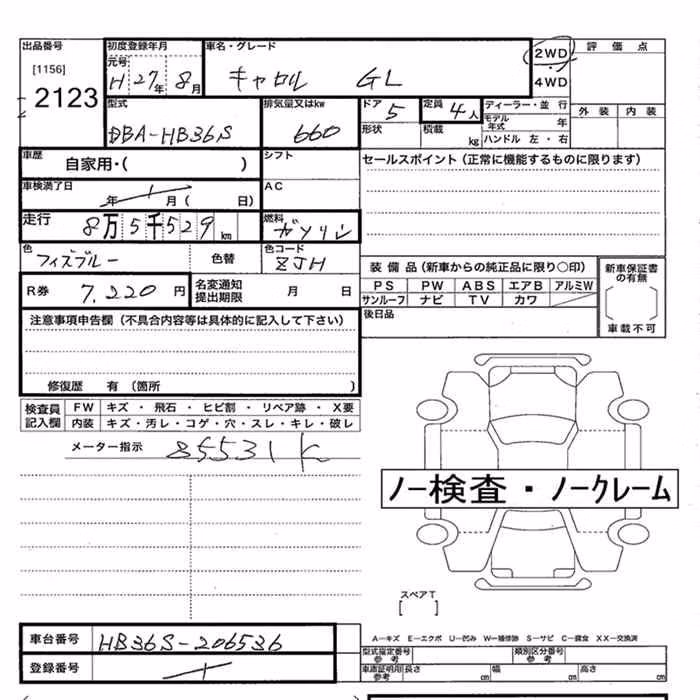 出品番号 初度登録年月 車名・グレード 2WD 評価点
[1156] 元号
2123 H 27年 8月 キャロル GL 4WD
型式 排気量又はkw ドア 5 定員 4人 ディーラー・並行 外装 内装
DBA-HB36S 660 形状 積載 kg モデル年式 年
ハンドル 左・右
車歴 自家用・( ) シフト セールスポイント(正常に機能するものに限ります)
車検満了日 年 月( 日) AC
走行 8万5千529km 燃料 ガソリン
色 フィズブルー 色替 色コード ZJH
装備品(新車からの純正品に限り○印) 新車保証書の有無
R券 7,220円 名変通知提出期限 月 日 PS PW ABS エアB アルミW
サンルーフ ナビ TV カワ
注意事項申告欄(不具合内容等は具体的に記入して下さい) 後日品 車載不可
修復歴 有(箇所 )
検査員記入欄 FW キズ・飛石・ヒビ割・リペア跡・X要
内装 キズ・汚レ・コゲ・穴・スレ・キレ・破レ
メーター指示 85531K
ノー検査・ノークレーム
スペアT
[ ]
車台番号 HB36S-206536
A-キズ E-エクボ U-凹み W-補修跡 S-サビ C-腐食 XX-交換済
型式指定番号 参考 類別区分番号 参考
登録番号 車庫証明用 参考 長さ cm 幅 cm 高さ cm